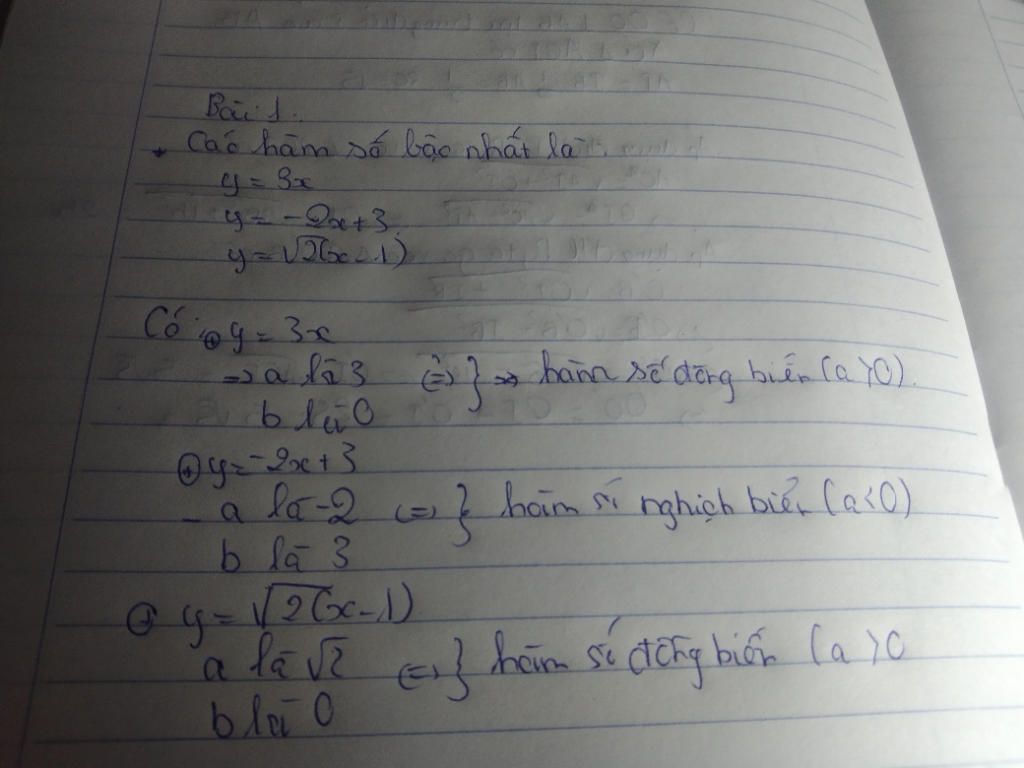 Bài 1.
* Các hàm số bậc nhất là:
y = 3x
y = -2x+3.
y = √2(x-1)
Có: ⊕ y = 3x
=> a là 3 <=> } => hàm số đồng biến (a>0).
b là 0
⊕ y = -2x+3
- a là -2 <=> } hàm số nghịch biến (a<0)
b là 3
⊕ y = √2(x-1)
a là √2 <=> } hàm số đồng biến (a>0
b là 0